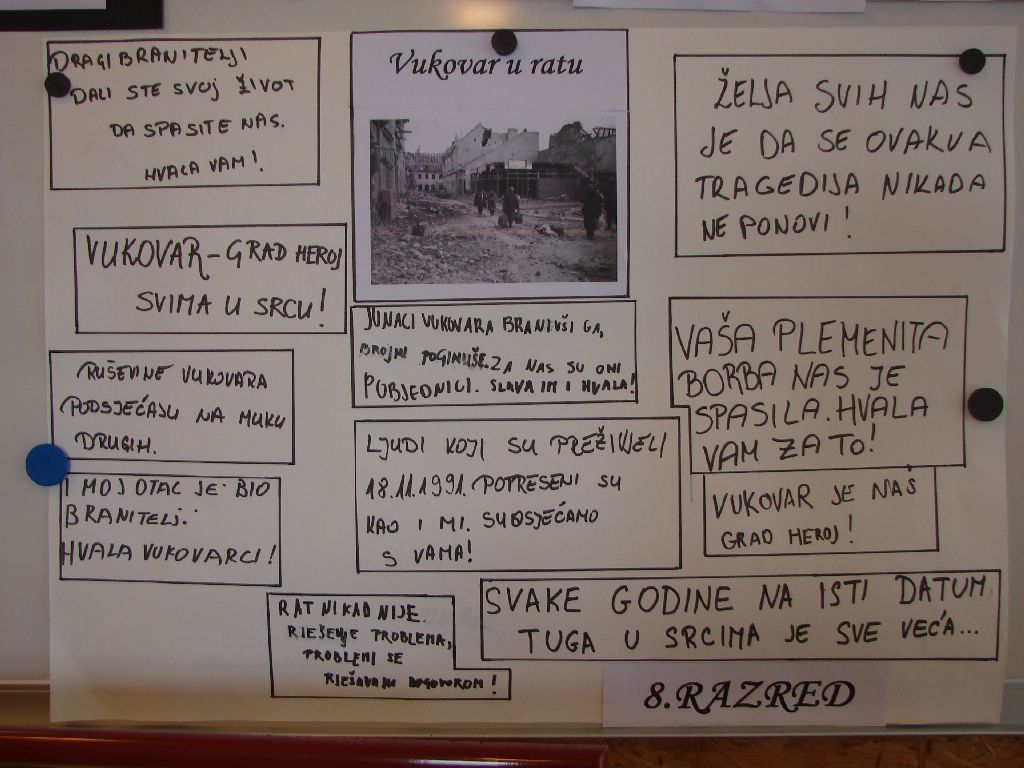 DRAGI BRANITELJI
DALI STE SVOJ ŽIVOT
DA SPASITE NAS.
HVALA VAM!
Vukovar u ratu
ŽELJA SVIH NAS
JE DA SE OVAKVA
TRAGEDIJA NIKADA
NE PONOVI!
VUKOVAR-GRAD HEROJ
SVIMA U SRCU!
JUNACI VUKOVARA BRANIVŠI GA,
BROJNI POGINUŠE. ZA NAS SU ONI
POBJEDNICI. SLAVA IM I HVALA!
VAŠA PLEMENITA
BORBA NAS JE
SPASILA. HVALA
VAM ZA TO!
RUŠEVINE VUKOVARA
PODSJEĆAJU NA MUKU
DRUGIH.
LJUDI KOJI SU PREŽIVJELI
18.11.1991. POTRESENI SU
KAO I MI. SUOSJEĆAMO
S VAMA!
I MOJ OTAC JE BIO
BRANITELJ.
HVALA VUKOVARCI!
VUKOVAR JE NAŠ
GRAD HEROJ!
RAT NIKAD NIJE
RJEŠENJE PROBLEMA,
PROBLEMI SE
RJEŠAVAJU DOGOVOROM!
SVAKE GODINE NA ISTI DATUM
TUGA U SRCIMA JE SVE VEĆA...
8.RAZRED